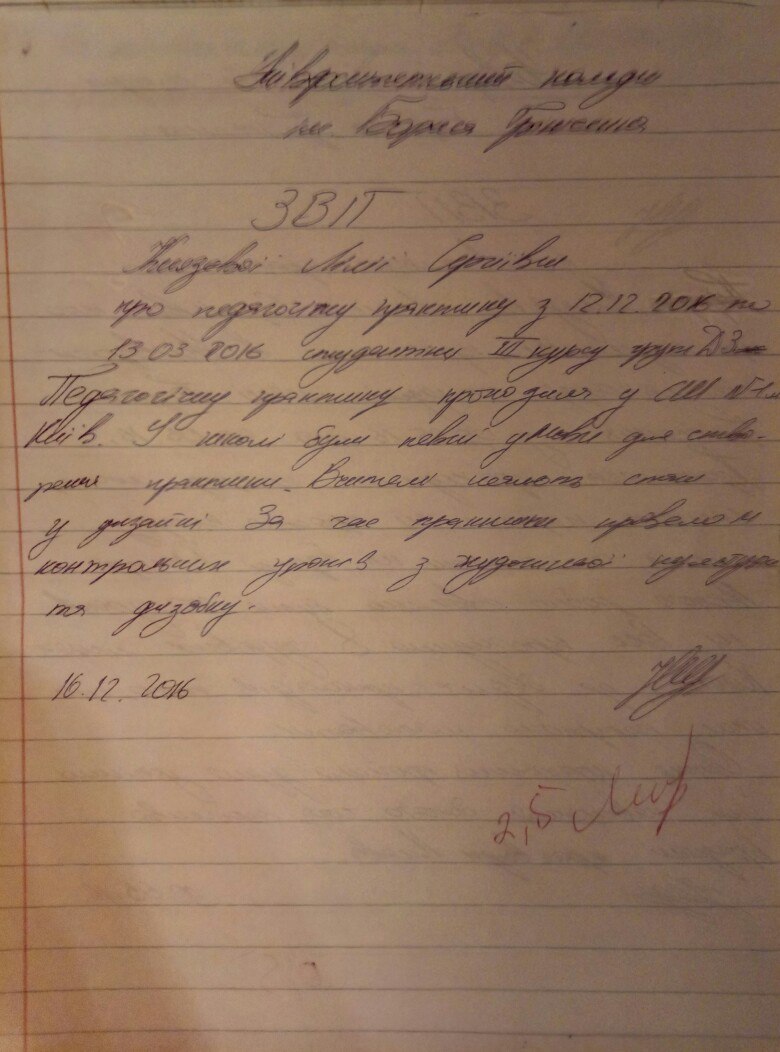 Університетський коледж
ім Бориса Грінченка
ЗВІТ
Князєвої Лілії Сергіївни
про педагогічну практику з 12.12.2016 по
13 03 2016 студентки III курсу групи ДЗ
Педагогічну практику проходила у СШ №1 м
Київ. У школі були певні умови для ство-
рення практики. Вчителі мають стаж
у дизайні За час практики провела
контрольних уроків з художньої культури
та дизайну.
16.12. 2016
2,5